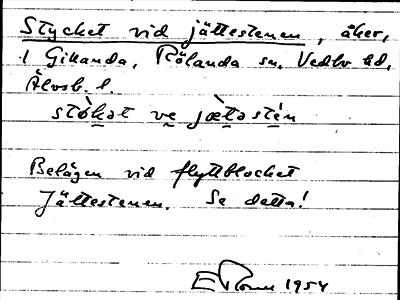 Stycket vid jättestenen, åker,
1 Gikanda, Rölanda sn, Vedbo hd,
Älvsb. l.
støkət ve jætəstén
Belägen vid flyttblocket
Jättestenen. Se detta!
1954